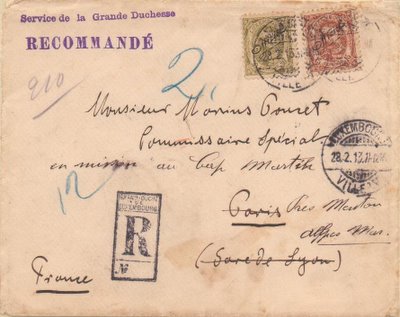 Service de la Grande Duchesse
RECOMMANDÉ
210
2
Monsieur Marius Gouret
Commissaire Spécial
en mission au Cap Martin
Paris près Menton
Alpes Mar.
(Gare de Lyon)
France
R
No
LUXEMBOURG
28.2.13
VILLE
VILLE